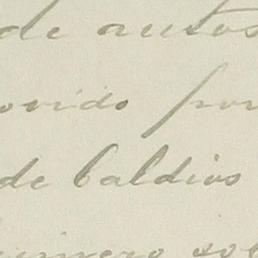 de autos
ovido por
de baldios
numero sob